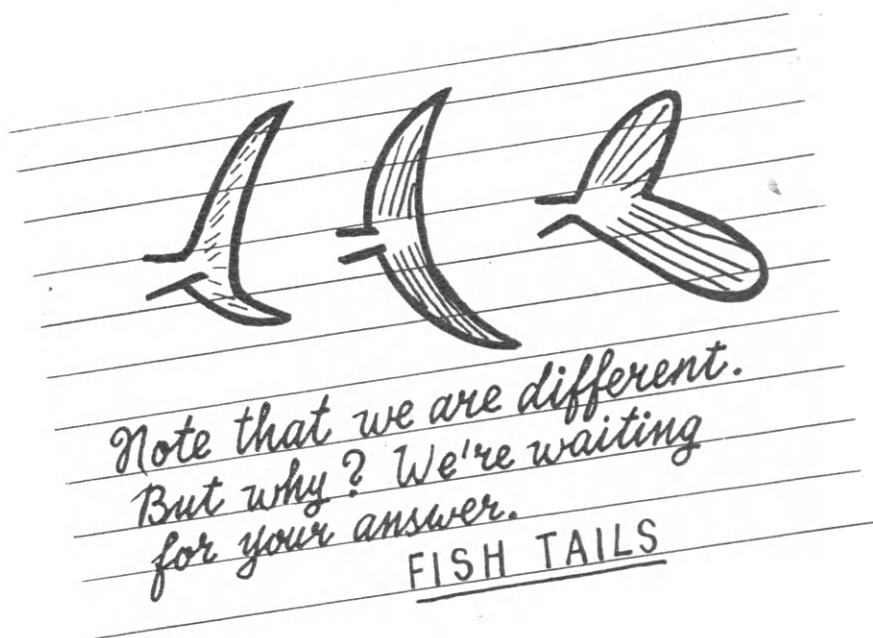 Note that we are different.
But why? We're waiting
for your answer.
FISH TAILS